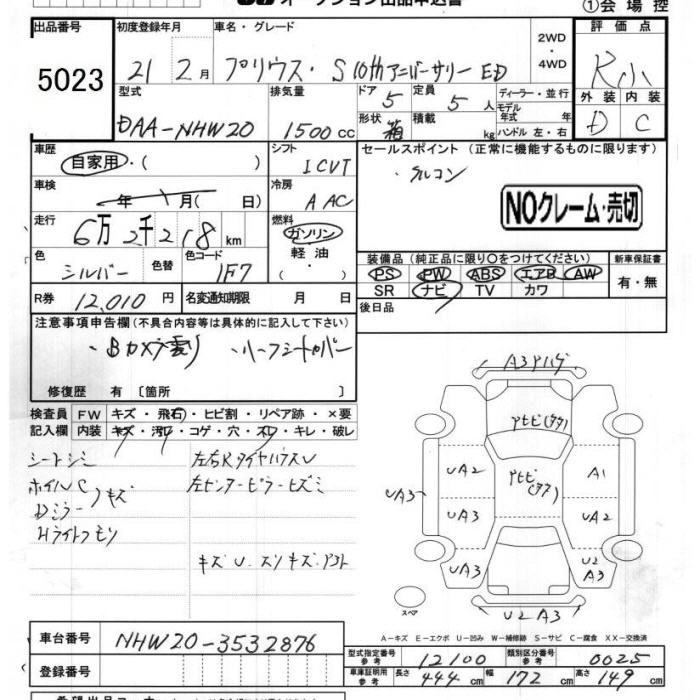 オークション出品申込書
①会場控
出品番号 初度登録年月 車名・グレード 2WD・4WD 評価点
5023 21 2月 プリウス・S 10thアニバーサリーED R小
型式 排気量 ドア 5 定員 5人 ディーラー・並行 外装 内装
DAA-NHW20 1500cc 形状 箱 積載 kg モデル年式 年 ハンドル 左・右 D C
車歴 自家用・( ) シフト ICVT セールスポイント (正常に機能するものに限ります)
車検 年 月( 日) 冷房 A AC ・アルコン
NOクレーム・売切
走行 6万2千218km 燃料 ガソリン・軽油・( )
色 シルバー 色替 色コード 1F7
装備品 (純正品に限り○をつけてください) 新車保証書
PS PW ABS エアB AW 有・無
SR ナビ TV カワ
R券 12,010円 名変通知期限 月 日 後日品
注意事項申告欄 (不具合内容等は具体的に記入して下さい)
・Bカメラ曇り ・ハーフシートカバー
修復歴 有 〔箇所 〕
検査員記入欄 FW キズ・飛石・ヒビ割・リペア跡・×要
内装 キズ・汚れ・コゲ・穴・スレ・キレ・破レ
シートシミ 左右RタイヤハウスU
ホイルC 左センターピラーヒズミ
Dミラー キズ
Hライトクモリ
キズ U・スリキズ・アクト
A3アハゲ
アヒビ(タタ)
UA2 アヒビ(タタ) A1
UA3 UA3 UA2
UA3 U2A3
スペア U2A3
A-キズ E-エクボ U-凹み W-補修跡 S-サビ C-腐食 XX-交換済
車台番号 NHW20-3532876
型式指定番号 参考 12100 類別区分番号 参考 0025
登録番号 車庫証明用 参考 長さ 444cm 幅 172cm 高さ 149cm